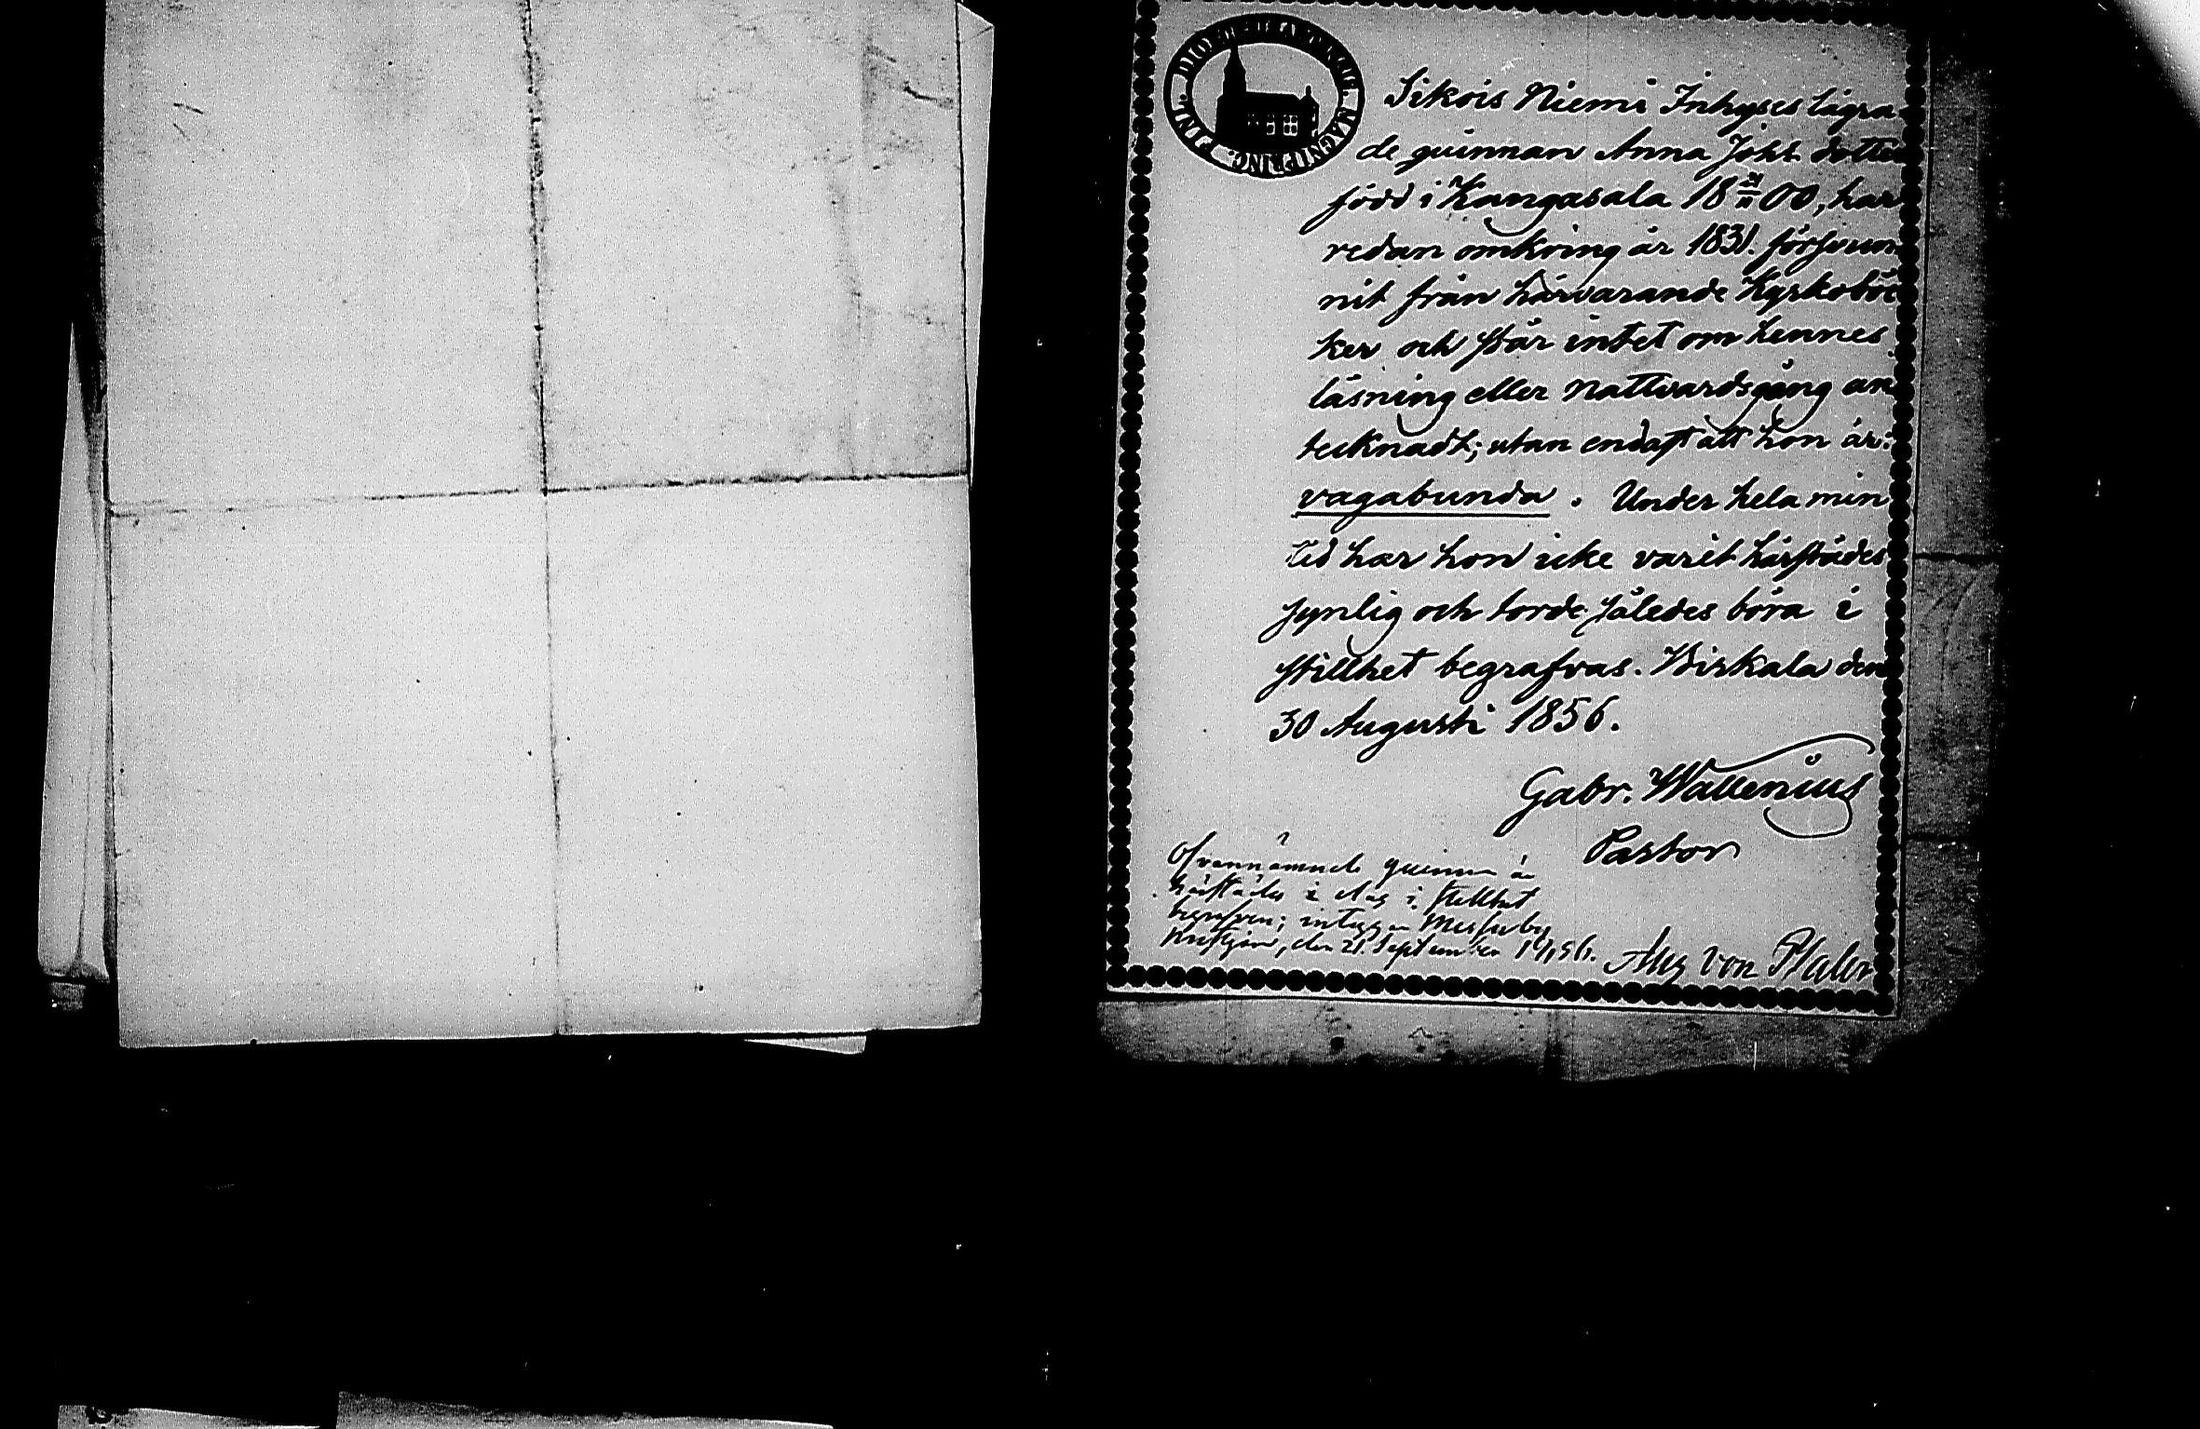 FINL. DIOE MAGN. PRINC.
Sikois Niemi Inhyses lägra-
de quinnan Anna Joh: dotter
född i Kangasala 18 00, har
redan omkring år 1831. försvun-
nit från härvarande Kyrkoböc-
ker och står intet om hennes
läsning eller Nattvardsgång an-
tecknadt; utan endast att hon är:
vagabunda. Under hela min
tid har hon icke varit härstädes
synlig och torde således böra i
stillhet begrafvas. Birkala den
30 Augusti 1856.
Gabr. Wallenius
Pastor
Ofvannämnde quinna är
härstädes i dag i stillhet
begrafven; intygar Messuby
den 21 September 1856. Aug von Pfaler